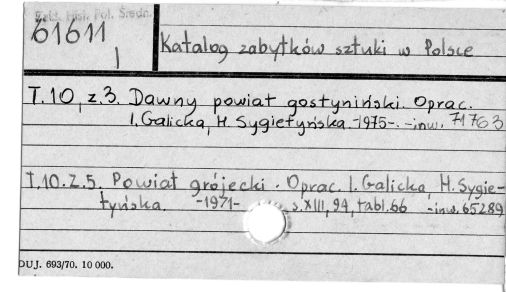 Zakł. Hist. Pol. Średn.
61611
I
Katalog zabytków sztuki w Polsce
T.10, z.3. Dawny powiat gostyniński. Oprac.
I. Galicka, H. Sygietyńska. -1975-. -inw. 71763
T.10. Z.5. Powiat grójecki. Oprac. I. Galicka, H. Sygie-
tyńska. -1971- s. XIII, 94, tabl. 66 -inw. 65289
DUJ. 693/70. 10 000.